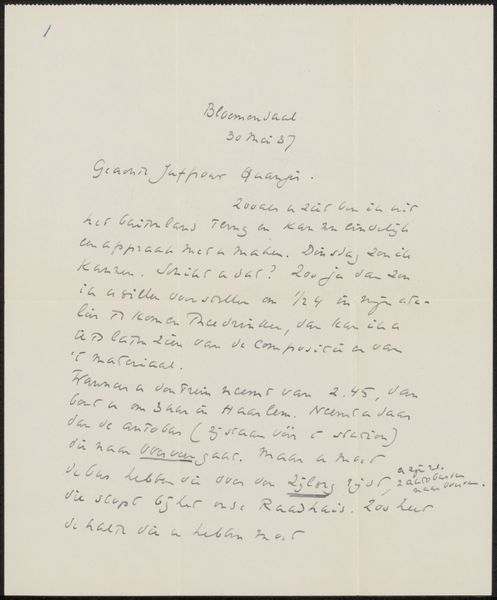 1
Bloemendaal
30 Mei 37
Geachte Juffrouw Quanjer.
Zooals u ziet ben ik uit
het buitenland terug en kan nu eindelijk
een afspraak met u maken. Dinsdag zou ik
kunnen. Schikt u dat? Zoo ja dan zou
ik u willen voorstellen om 1/2 4 in mijn ate-
lier te komen Theedrinken, dan kan ik u
iets laten zien van de compositie en van
't materiaal.
Wanneer u den trein neemt van 2.45, dan
bent u om 3 uur in Haarlem. Neemt u daar
dan de autobus (zij staan vóór 't station)
die naar Overveen gaat. Maar u moet
de bus hebben die over den Zijlweg rijdt,
er zijn nl. 2 autobussen naar Overveen.
die stopt bij het oude Raadhuis. Zoo heet
de halte die u hebben moet